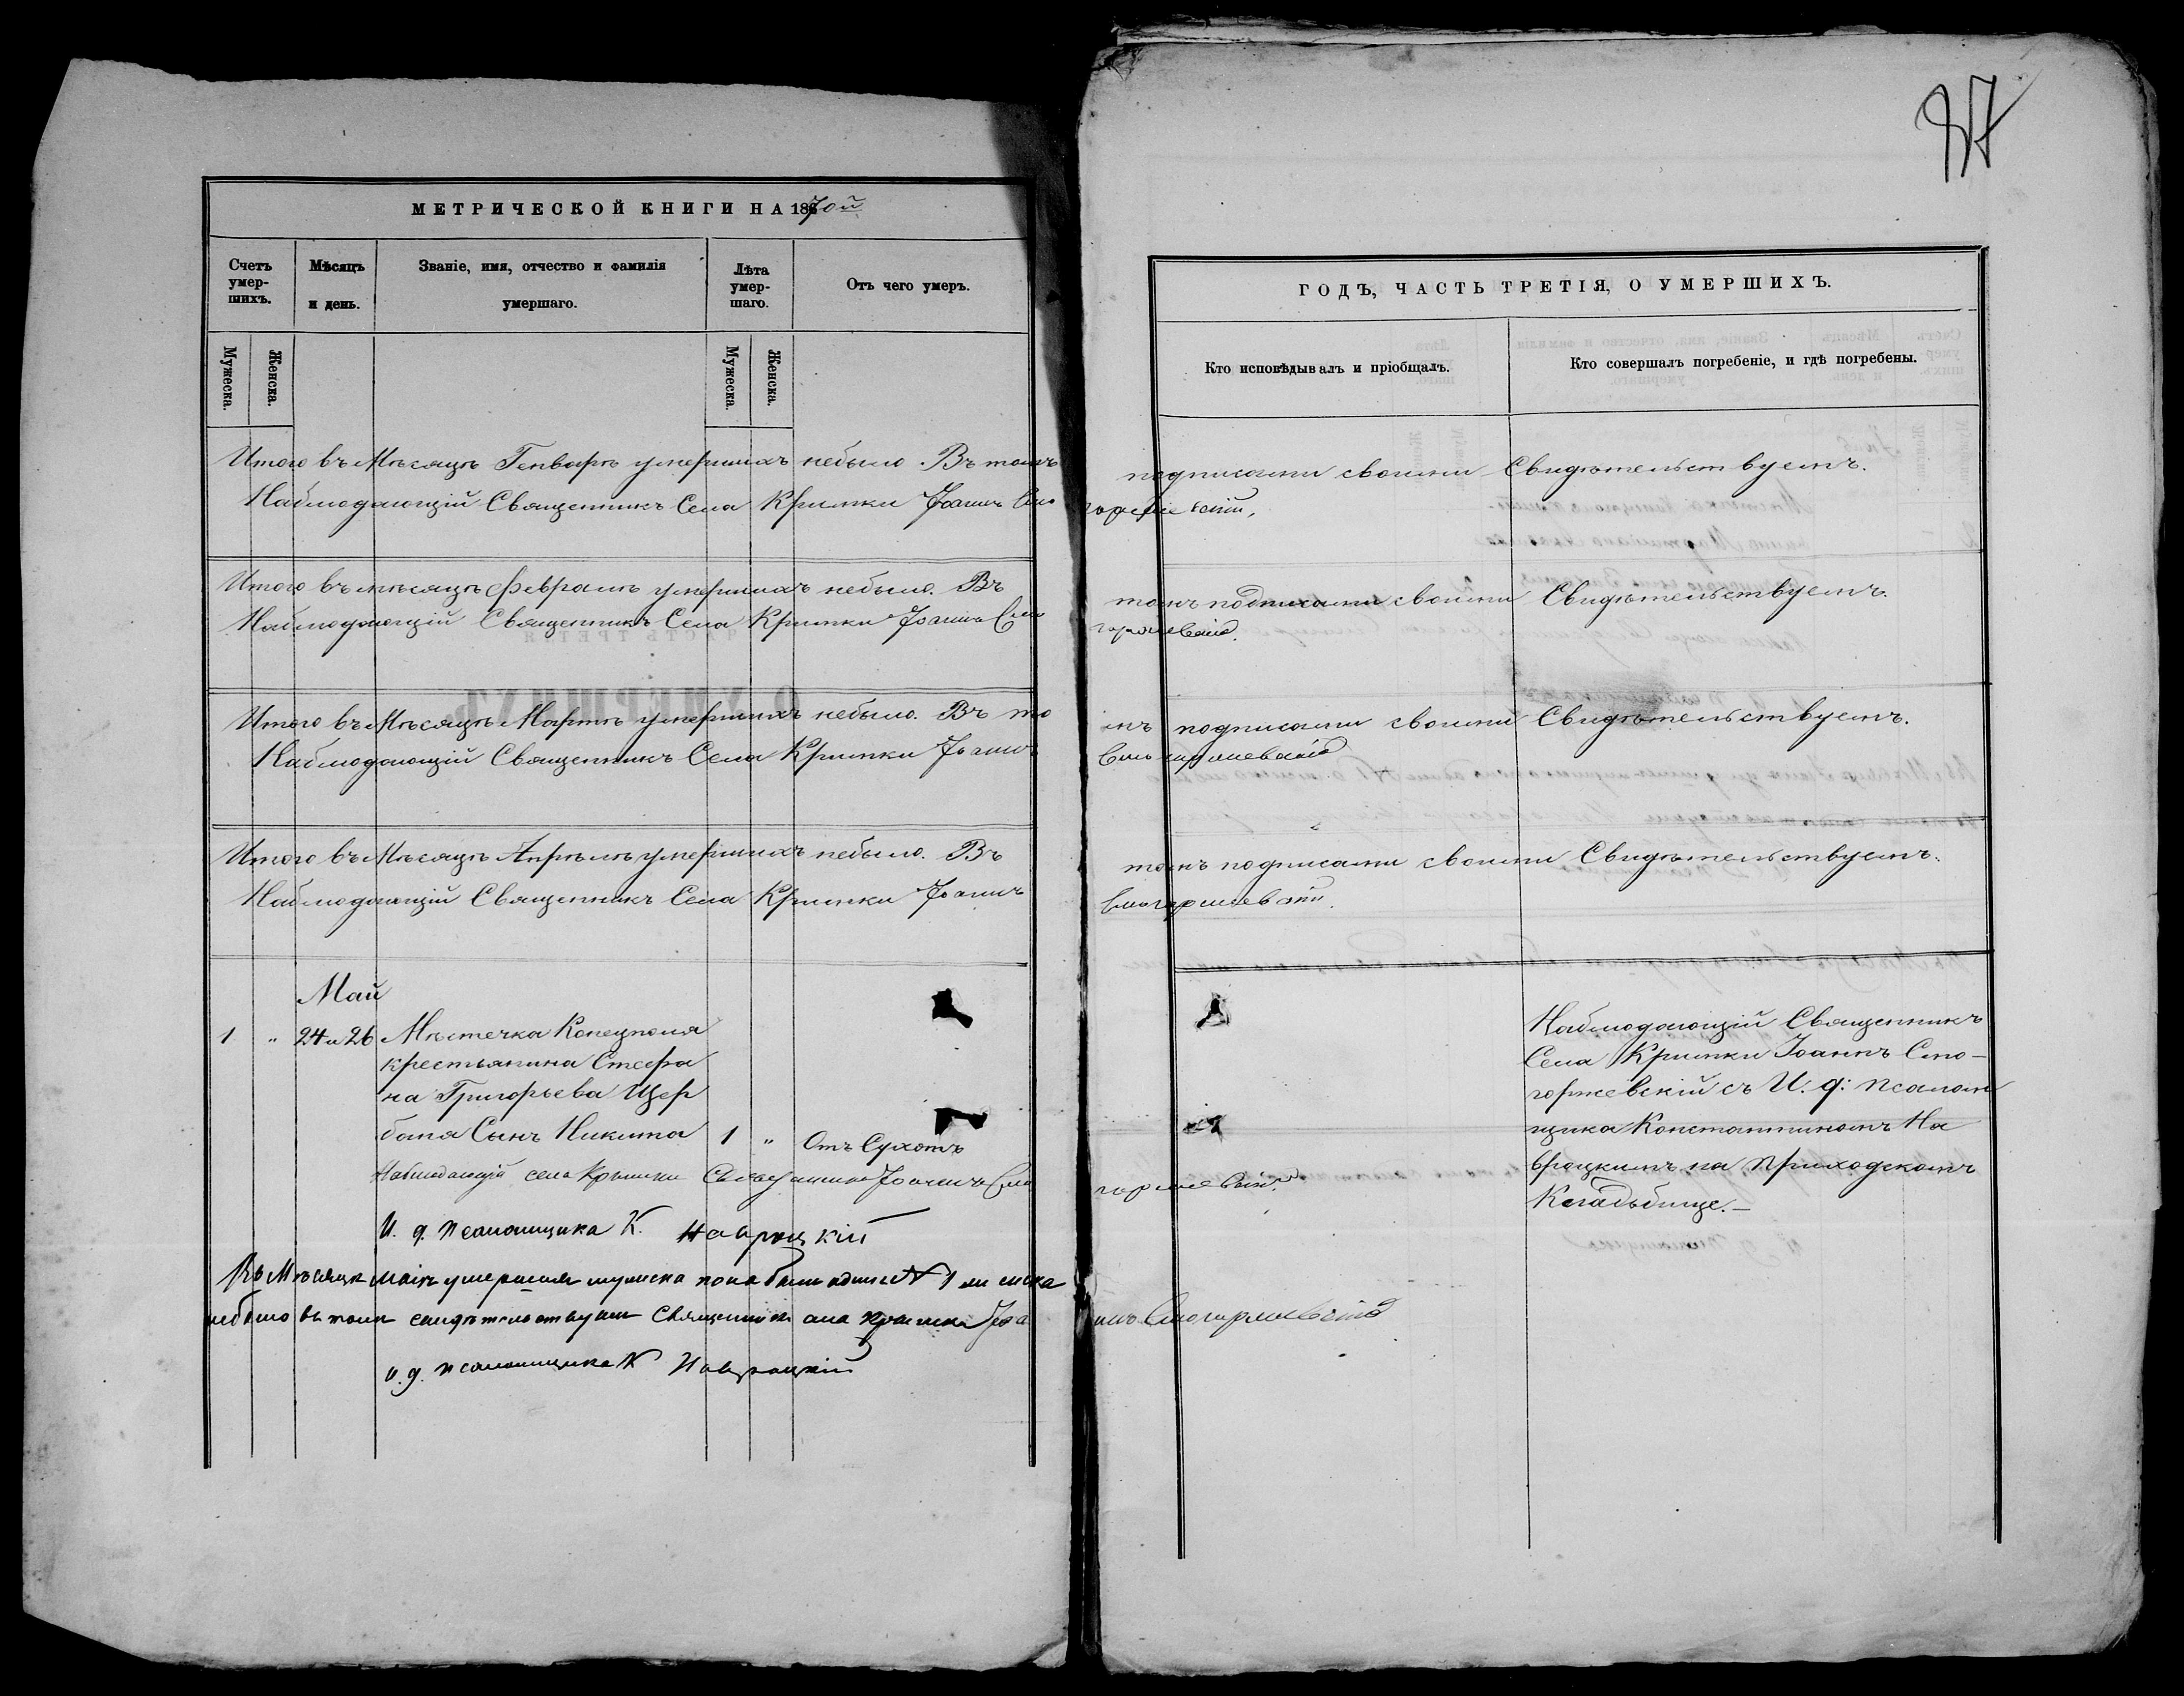 87
МЕТРИЧЕСКОЙ КНИГИ НА 1870й
Счетъ умер-шихъ.
Мѣсяцъ и день.
Званіе, имя, отчество и фамилія умершаго.
Лѣта умер-шаго.
Отъ чего умеръ.
Мужеска.
Женска.
Мужеска.
Женска.
ГОДЪ, ЧАСТЬ ТРЕТІЯ, О УМЕРШИХЪ.
Кто исповѣдывалъ и пріобщалъ.
Кто совершалъ погребеніе, и гдѣ погребены.
Итого въ Мѣсяцѣ Генварѣ умершихъ небыло. Въ томъ подписами своими Свидѣтельствуемъ.
Наблюдающій Священникъ Села Кримки Іоаннъ
Итого въ мѣсяцѣ Февралѣ умершихъ небыло. Въ томъ подписами своими Свидѣтельствуемъ.
Наблюдающій Священникъ Села Кримки Іоаннъ
Итого въ Мѣсяцѣ Мартѣ умершихъ небыло. Въ томъ подписами своими Свидѣтельствуемъ.
Наблюдающій Священникъ Села Кримки Іоаннъ
Итого въ Мѣсяцѣ Апрѣлѣ умершихъ небыло. Въ томъ подписами своими Свидѣтельствуемъ.
Наблюдающій Священникъ Села Кримки Іоаннъ
Май
1 " 24 и 26 Мѣстечка Конецполя
крестьянина Стефа
на Григорьева Щер
баня Сынъ Никита 1 " Отъ Сухотъ
Наблюдающій Священникъ
Села Кримки Іоаннъ Смо-
горжевскій съ И. д: псалом
щика Константиномъ На
вроцкимъ на приходскомъ
Кладьбище.–
Наблюдающій села Крымки Священникъ Іоаннъ Смо
горжевскій
И. д. псаломщика К. Навроцкій
Въ Мѣсяцѣ маіѣ умершихъ мужеска пола былъ одинъ № 1 женска
небыло въ томъ свидѣтельствуемъ Священникъ села Крымки Іоа
ннъ Смогоржевскій
и. д. псаломщика К Навроцкій